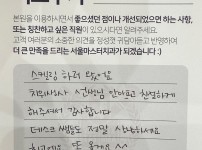 본원을 이용하시면서 좋으셨던 점이나 개선되었으면 하는 사항,
또는 칭찬하고 싶은 직원이 있으시다면 알려주세요.
고객 여러분의 소중한 의견을 정성껏 귀담아듣고 반영하여
더 큰 만족을 드리는 서울마스터치과가 되겠습니다 :)
스켈링 하러
치과의사 선생님 안아프고 친절하게
해주셔서 감사합니다
데스크 쌤들도 정말 친절하세요
또 올게요